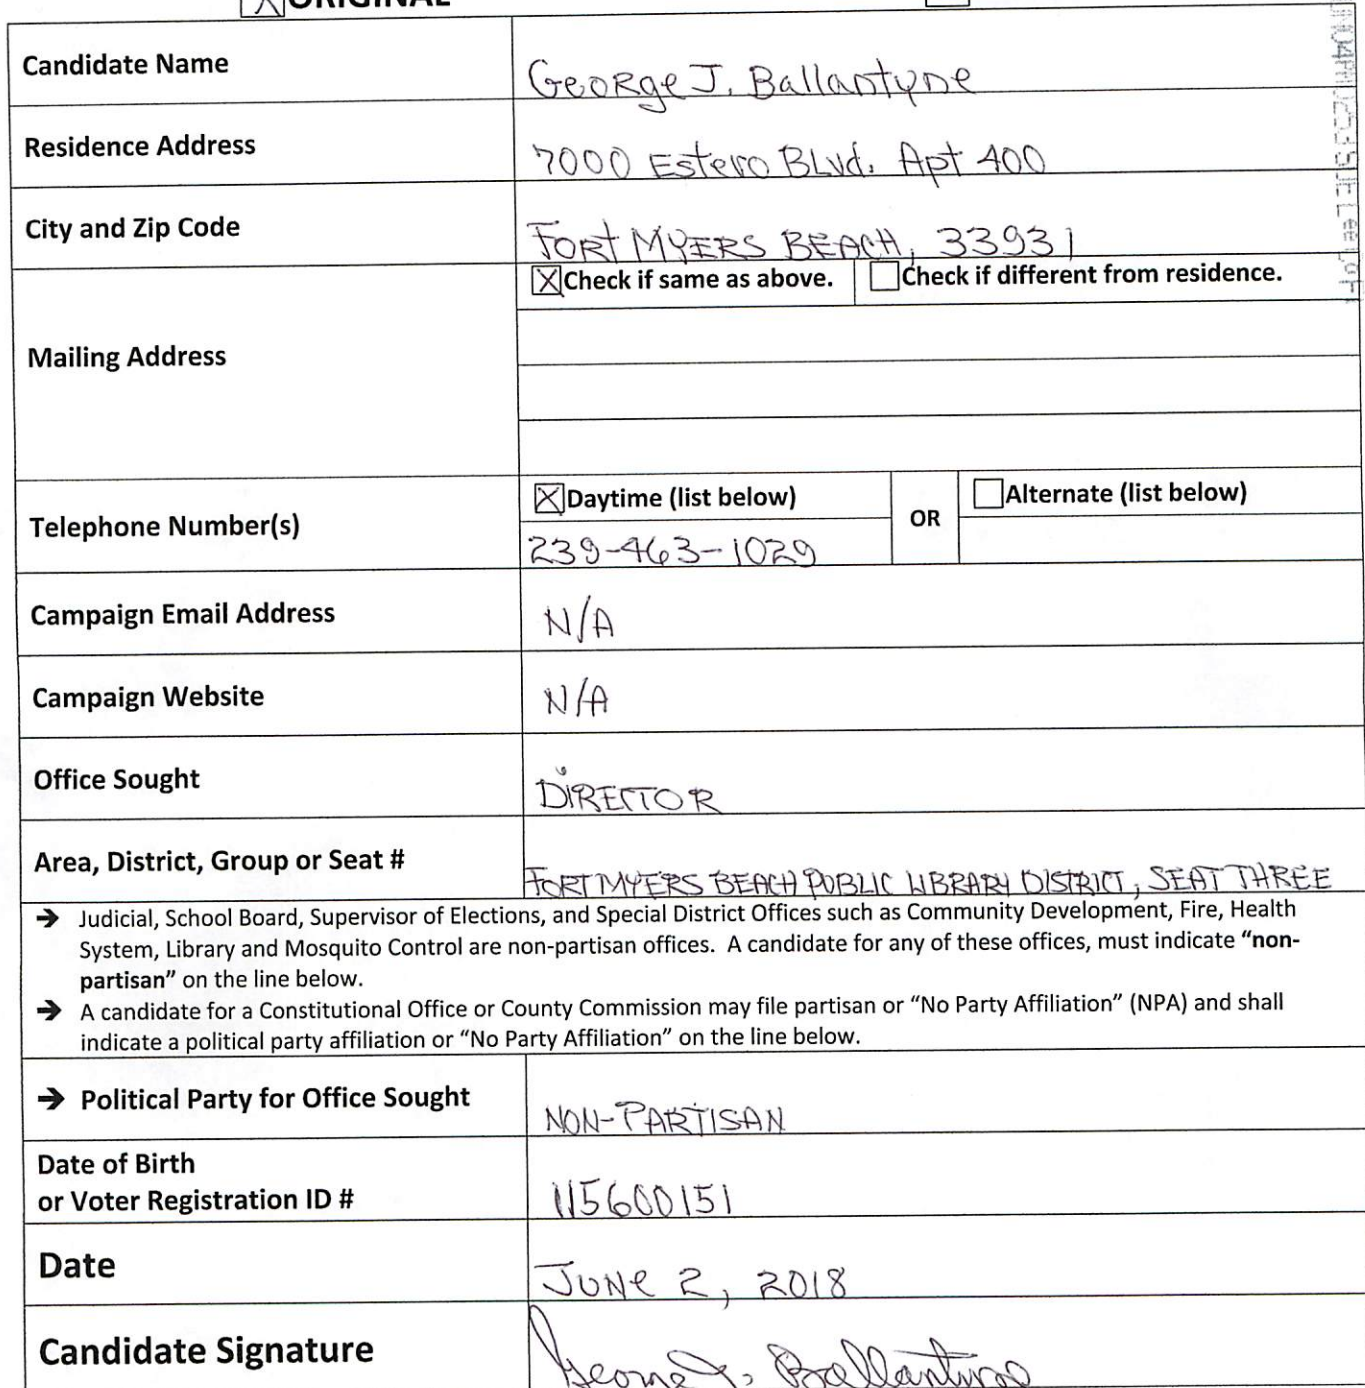 ORIGINAL
Candidate Name
George J. Ballantyne
Residence Address
7000 Estero BLvd. Apt 400
City and Zip Code
FORT MYERS BEACH, 33931
Mailing Address
Check if same as above.
Check if different from residence.
Telephone Number(s)
Daytime (list below)
OR
Alternate (list below)
239-463-1029
Campaign Email Address
N/A
Campaign Website
N/A
Office Sought
DIRECTOR
Area, District, Group or Seat #
FORT MYERS BEACH PUBLIC LIBRARY DISTRICT, SEAT THREE
→ Judicial, School Board, Supervisor of Elections, and Special District Offices such as Community Development, Fire, Health
System, Library and Mosquito Control are non-partisan offices. A candidate for any of these offices, must indicate “non-
partisan” on the line below.
→ A candidate for a Constitutional Office or County Commission may file partisan or “No Party Affiliation” (NPA) and shall
indicate a political party affiliation or “No Party Affiliation” on the line below.
→ Political Party for Office Sought
NON-PARTISAN
Date of Birth
or Voter Registration ID #
115600151
Date
JUNE 2, 2018
Candidate Signature
George J. Ballantyne